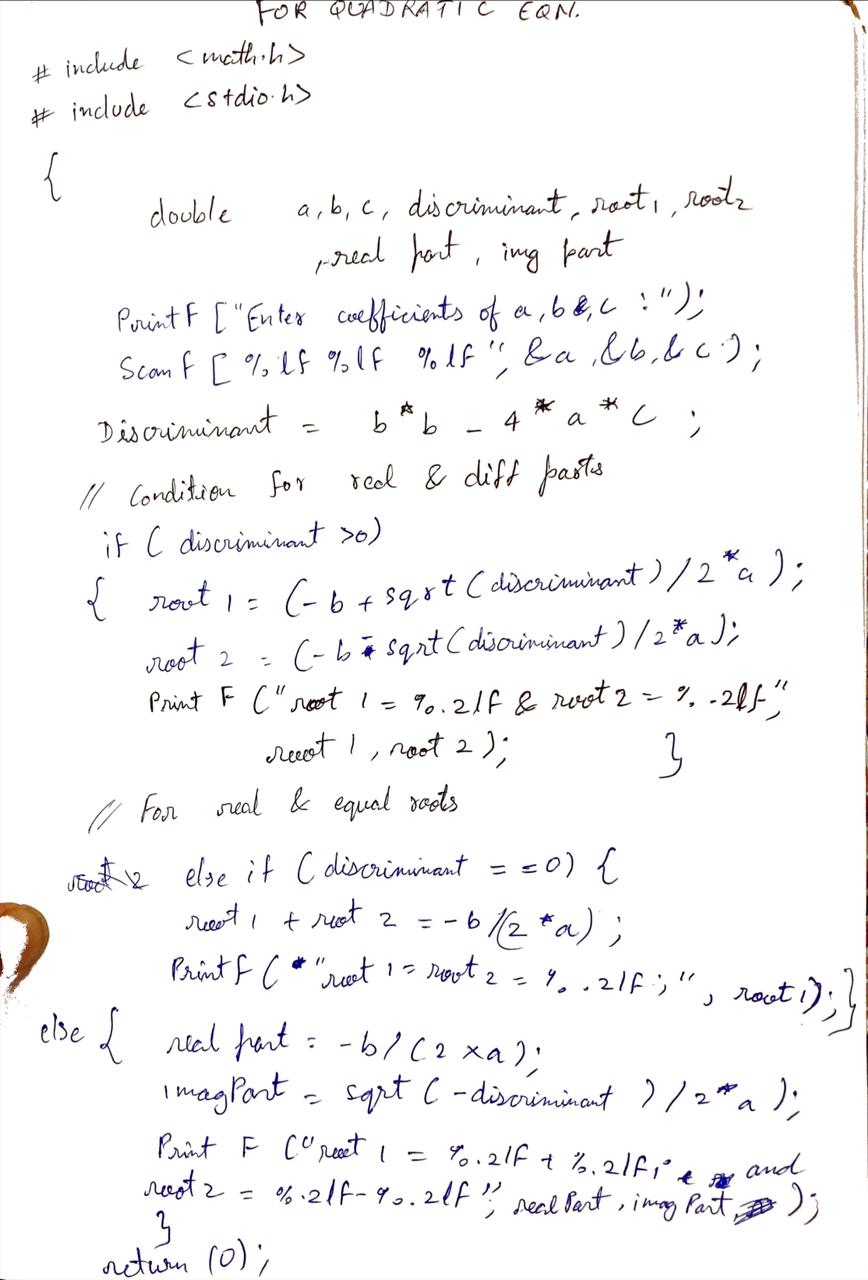 FOR QUADRATIC EQN.
# include <math.h>
# include <stdio.h>
{
double a, b, c, discriminant, root1, root2
, real part, img part
Printf ["Enter coefficients of a, b &, c :");
Scanf [ %lf %lf %lf", &a, &b, & c );
Discriminant = b*b - 4*a*c ;
// Condition for real & diff parts
if ( discriminant >0)
{ root 1 = (-b + sqrt (discriminant) / 2*a );
root 2 = (-b - sqrt (discriminant) / 2*a );
Print F (" root 1 = %.2lf & root 2 = %.-2lf",
root 1, root 2 ); }
// For real & equal roots
else if ( discriminant = =0) {
root 1 + root 2 = -b /(2 *a) ;
Printf ( "root 1 = root 2 = %..2lf ;", root 1); }
else { real part = -b / (2 x a );
imagPart = sqrt (-discriminant ) / 2*a );
Print F ("root 1 = %.2lf + %.2lfi and
root 2 = %.2lf-%.2lf", real Part, imag Part );
}
return (0);